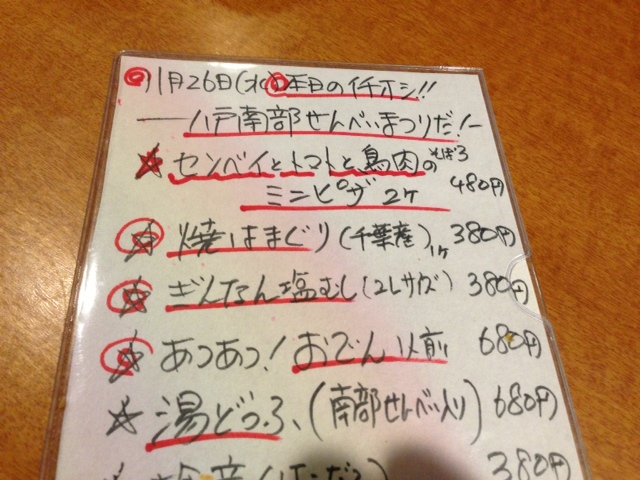 11月26日(水)本日のイチオシ!!
―八戸南部せんべいまつりだ!―
☆センベイとトマトと鳥肉のそぼろ
ミニピザ 2ケ 480円
☆焼はまぐり(千葉産)1ケ 380円
☆ぎんなん塩むし(2Lサイズ) 380円
☆あつあつ!おでん 1人前 680円
☆湯どうふ、(南部せんべい入り) 680円
380円